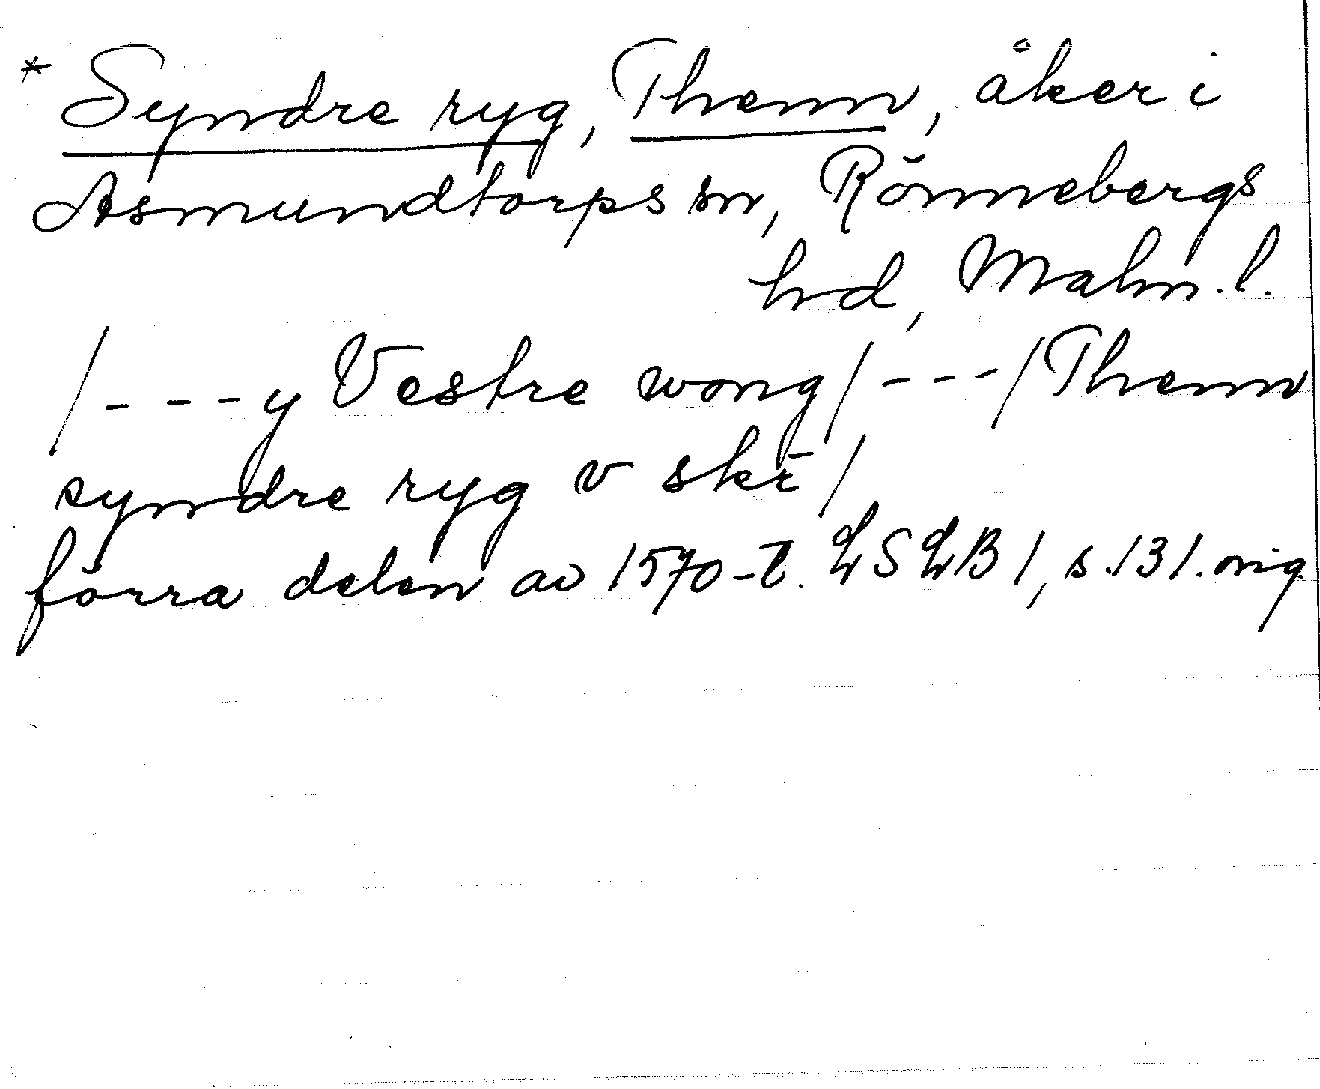 * Syndre ryg, Thenn, åker i
Asmundtorps sn, Rönnebergs
hd, Malm. l.
/---y Vestre wong/---/Thenn
syndre ryg v skē/
förra delen av 1570-t. LSLB 1, s. 131. orig